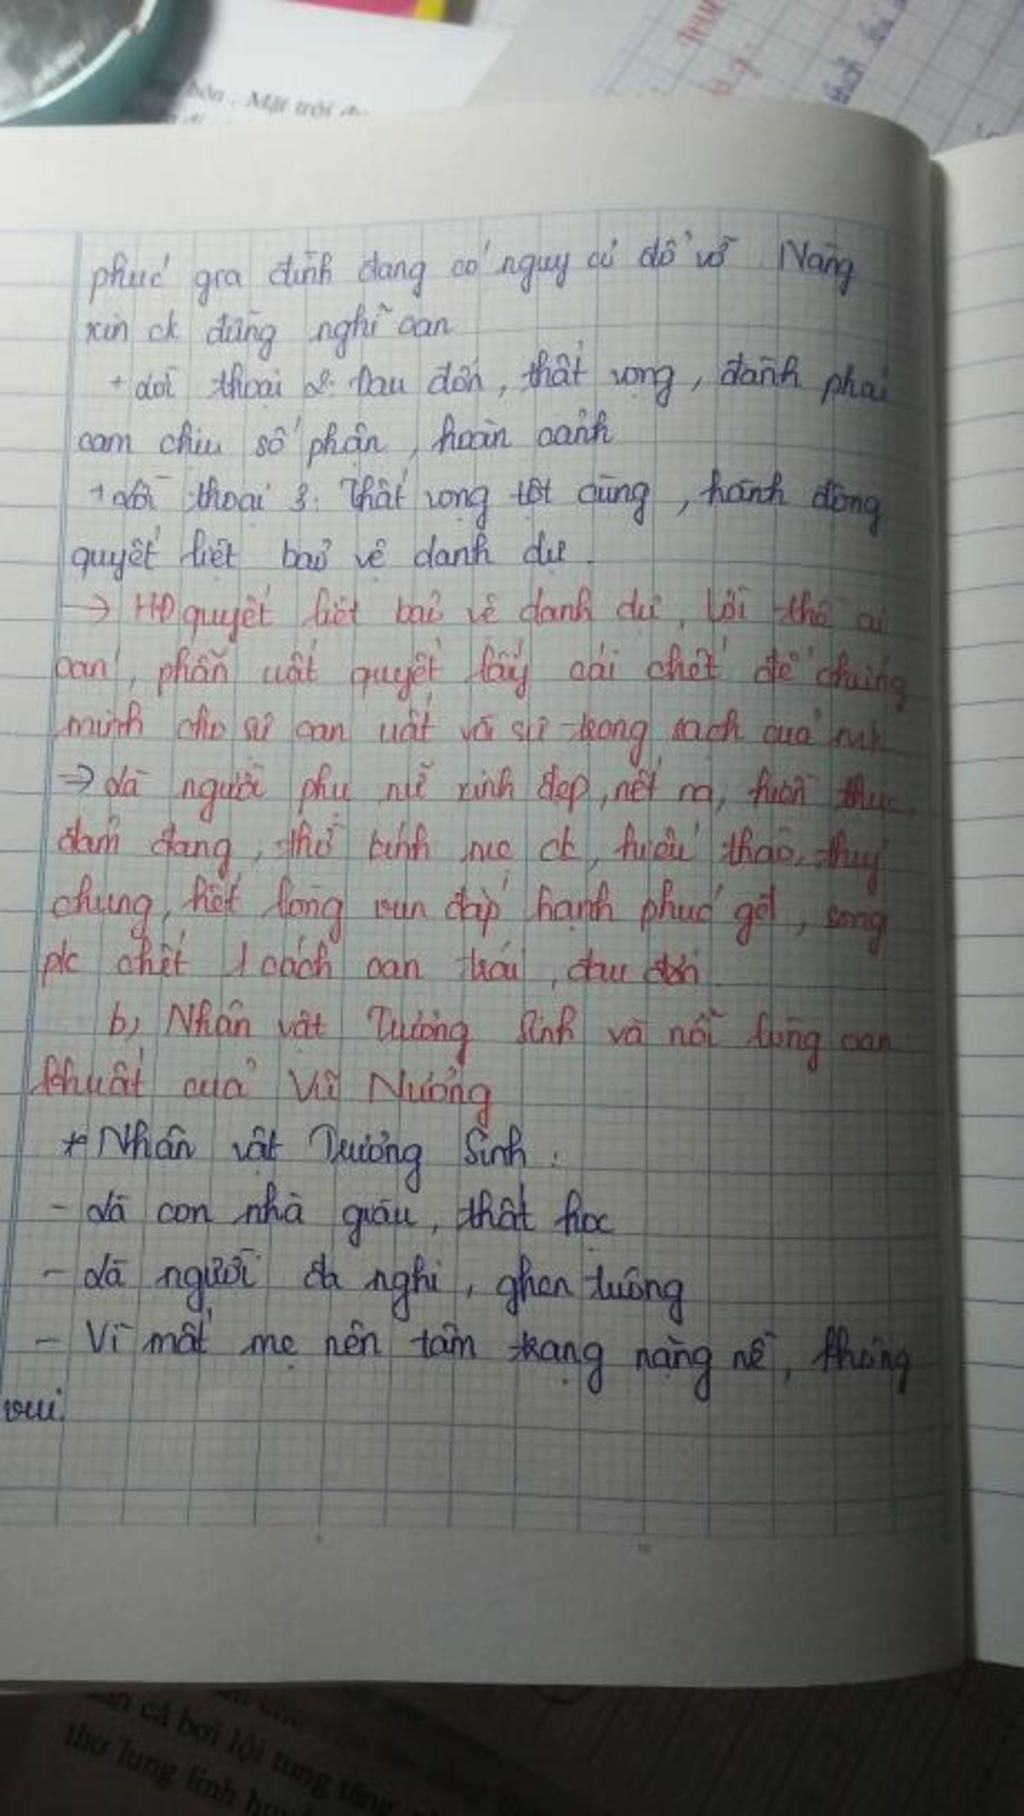 hôn. Mặt trời
phúc gia đình đang có nguy cơ đổ vỡ. Nàng
xin ck đừng nghi oan
+ lời thoại 2: Đau đớn, thất vọng, đành phải
cam chịu số phận, hoàn cảnh
+ lời thoại 3: Thất vọng tột cùng, hành động
quyết liệt bảo vệ danh dự.
→ HĐ quyết liệt bảo vệ danh dự, lời thề ai
oán, phẫn uất quyết lấy cái chết để chứng
minh cho sự oan uất và sự trong sạch của mk
⇒ là người phụ nữ xinh đẹp, nết na, hiền thục,
đảm đang, thờ kính mẹ ck, hiếu thảo, thuỷ
chung, hết lòng vun đắp hạnh phúc gđ, song
plc chết 1 cách oan trái, đau đớn
b, Nhân vật Trương Sinh và nỗi lòng oan
khuất của Vũ Nương
* Nhân vật Trương Sinh:
- là con nhà giàu, thất học
- là người đa nghi, ghen tuông
- Vì mất mẹ nên tâm trạng nặng nề, không
vui.
cá bơi lội tung tăng
thơ lung linh